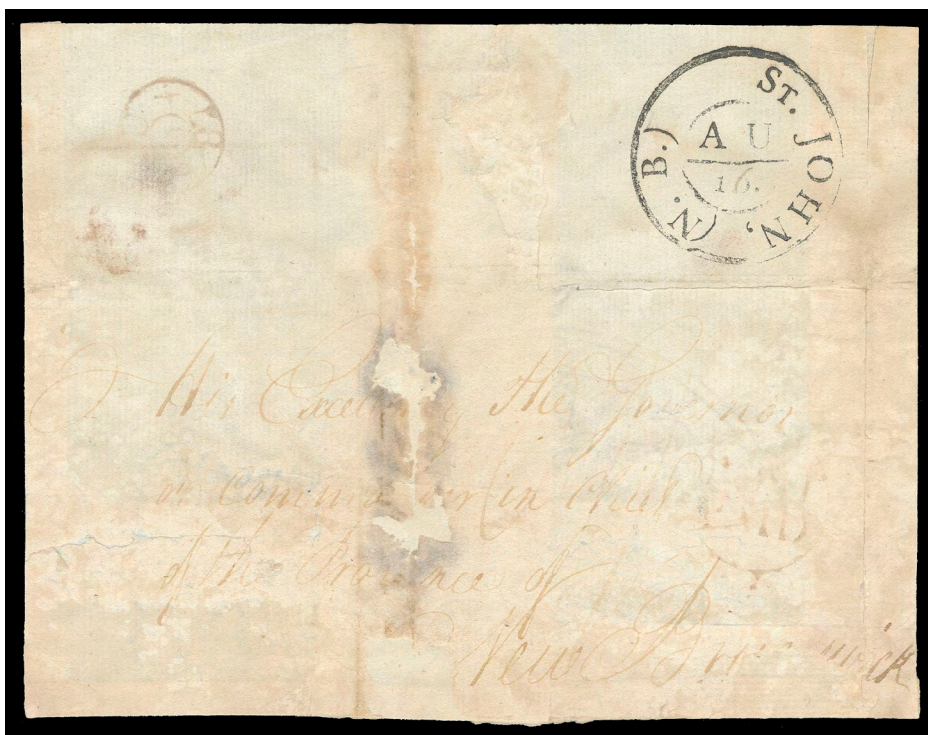 St. JOHN, (N. B.)
A U
16.
His Excellency the Governor
or Commander in Chief
of the Province of
New Brunswick